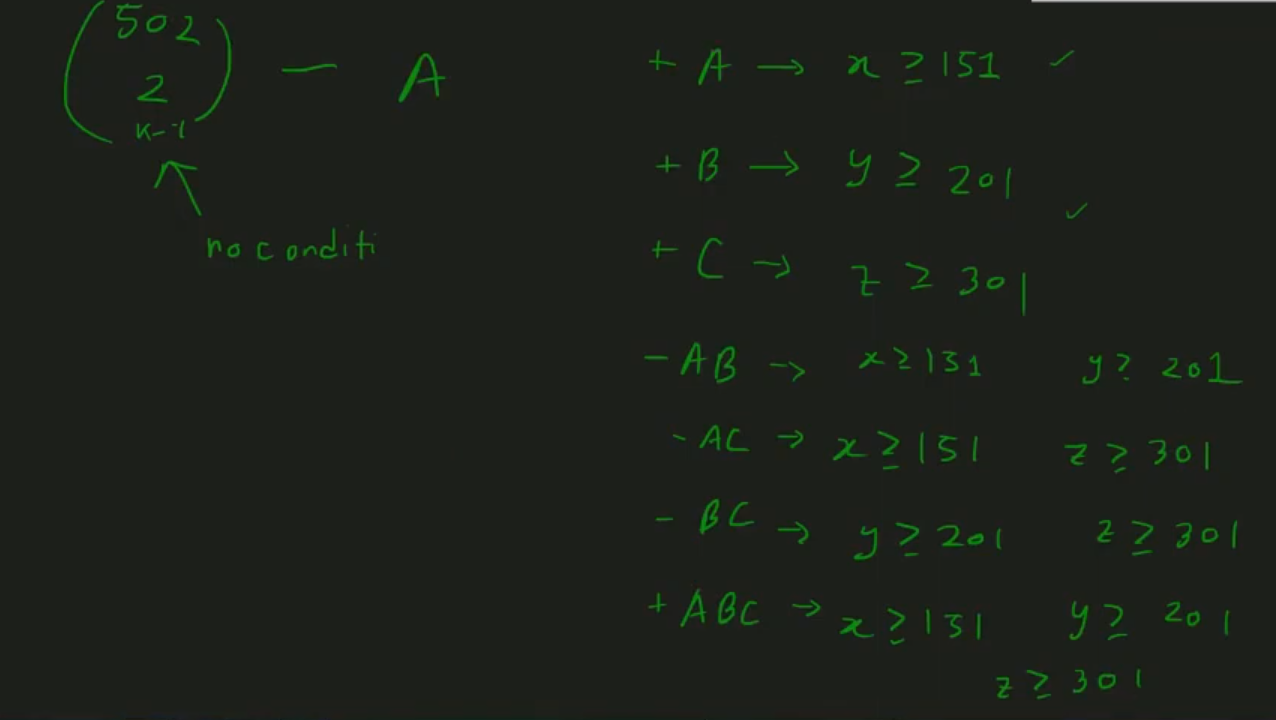 (502
2
k-1) — A
no conditi
+ A → x ≥ 151 ✓
+ B → y ≥ 201
✓
+ C → z ≥ 301
- AB → x ≥ 131 y ≥ 201
- AC → x ≥ 151 z ≥ 301
- BC → y ≥ 201 z ≥ 301
+ ABC → x ≥ 131 y ≥ 201
z ≥ 301